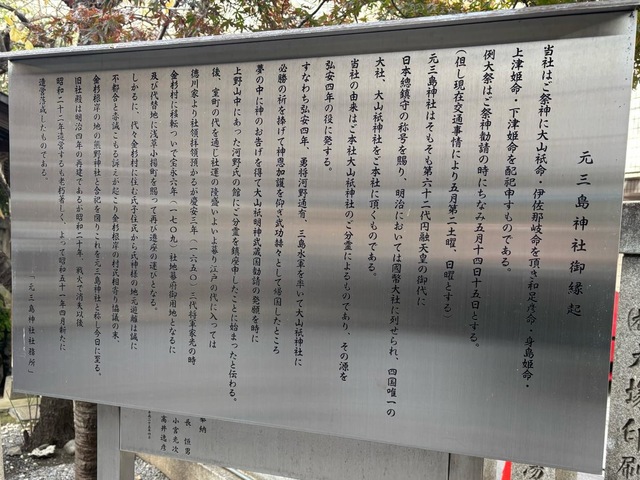 元三島神社御縁起
当社はご祭神に大山祇命・伊佐那岐命を頂き和足彦命・身島姫命・
上津姫命・下津姫命を配祀申すものである。
例大祭はご祭神勧請の時にちなみ五月十四日十五日とする。
(但し現在交通事情により五月第二土曜、日曜とする)
元三島神社はそもそも第六十二代円融天皇の御代に
日本総鎮守の称号を賜り、明治においては國幣大社に列せられ、四国唯一の
大社、大山祇神社をご本社に頂くものである。
当社の由来はご本社大山祇神社のご分霊によるものであり、その源を
弘安四年の役に発する。
すなわち弘安四年、勇将河野通有、三島水軍を率いて大山祇神社に
必勝の祈を捧げて神恩加護を仰ぎ武功赫々として帰国したところ
夢の中に神のお告げを得て大山祇明神武蔵国勧請の発願を時に
上野山中にあった河野氏の館にご分霊を鎮座申したことに始まったと伝わる。
後、室町の代を通し社運の隆盛いよいよ募り江戸の代に入っては
徳川家より社領拝領預かるが慶安三年(一六五〇)三代将軍家光の時
金杉村に移転ついで宝永六年(一七〇九)社地幕府御用地となるに
及び代替地に浅草小揚町を賜って再び遷座の運びとなる。
しかるに、代々金杉村に住む氏子住民から氏神様の地元遊離は誠に
不都合と赤誠こもる訴えが起こり金杉根岸の村民相寄り協議の末、
金杉根岸の地の熊野神社と合祀を図りこれを元三島神社と称し今日に至る。
旧社殿は明治四年の再建であるが昭和二十年、戦火で消失以後
昭和二十三年造営するも老朽著しく、よって昭和五十一年四月新たに
造営落成したものである。
「元三島神社社務所」
奉納
長恒男
小宮光次
高井逸彦